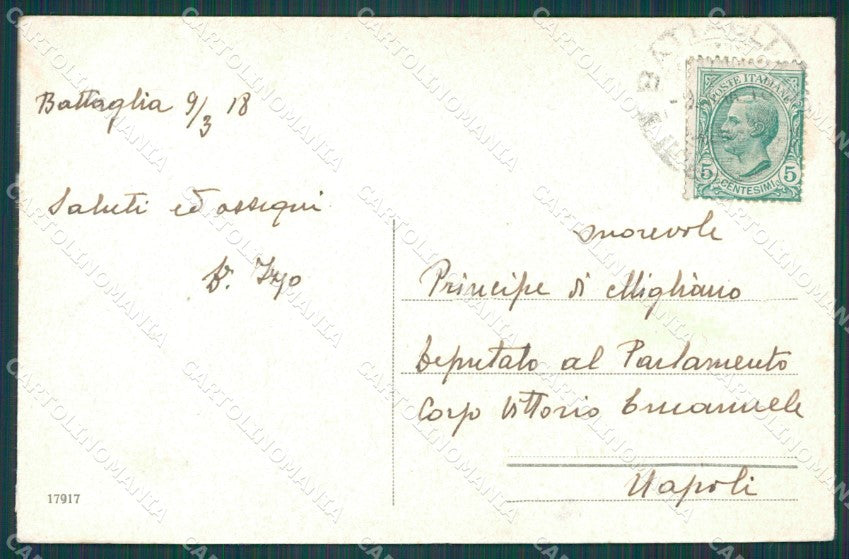 Battaglia 9/3 18
Saluti ed ossequi
BATTAGLI
POSTE ITALIANE
5 5
CENTESIMI
onorevole
Principe di Migliano
Deputato al Parlamento
Corso Vittorio Emanuele
Napoli
17917
CARTOLINOMANIA